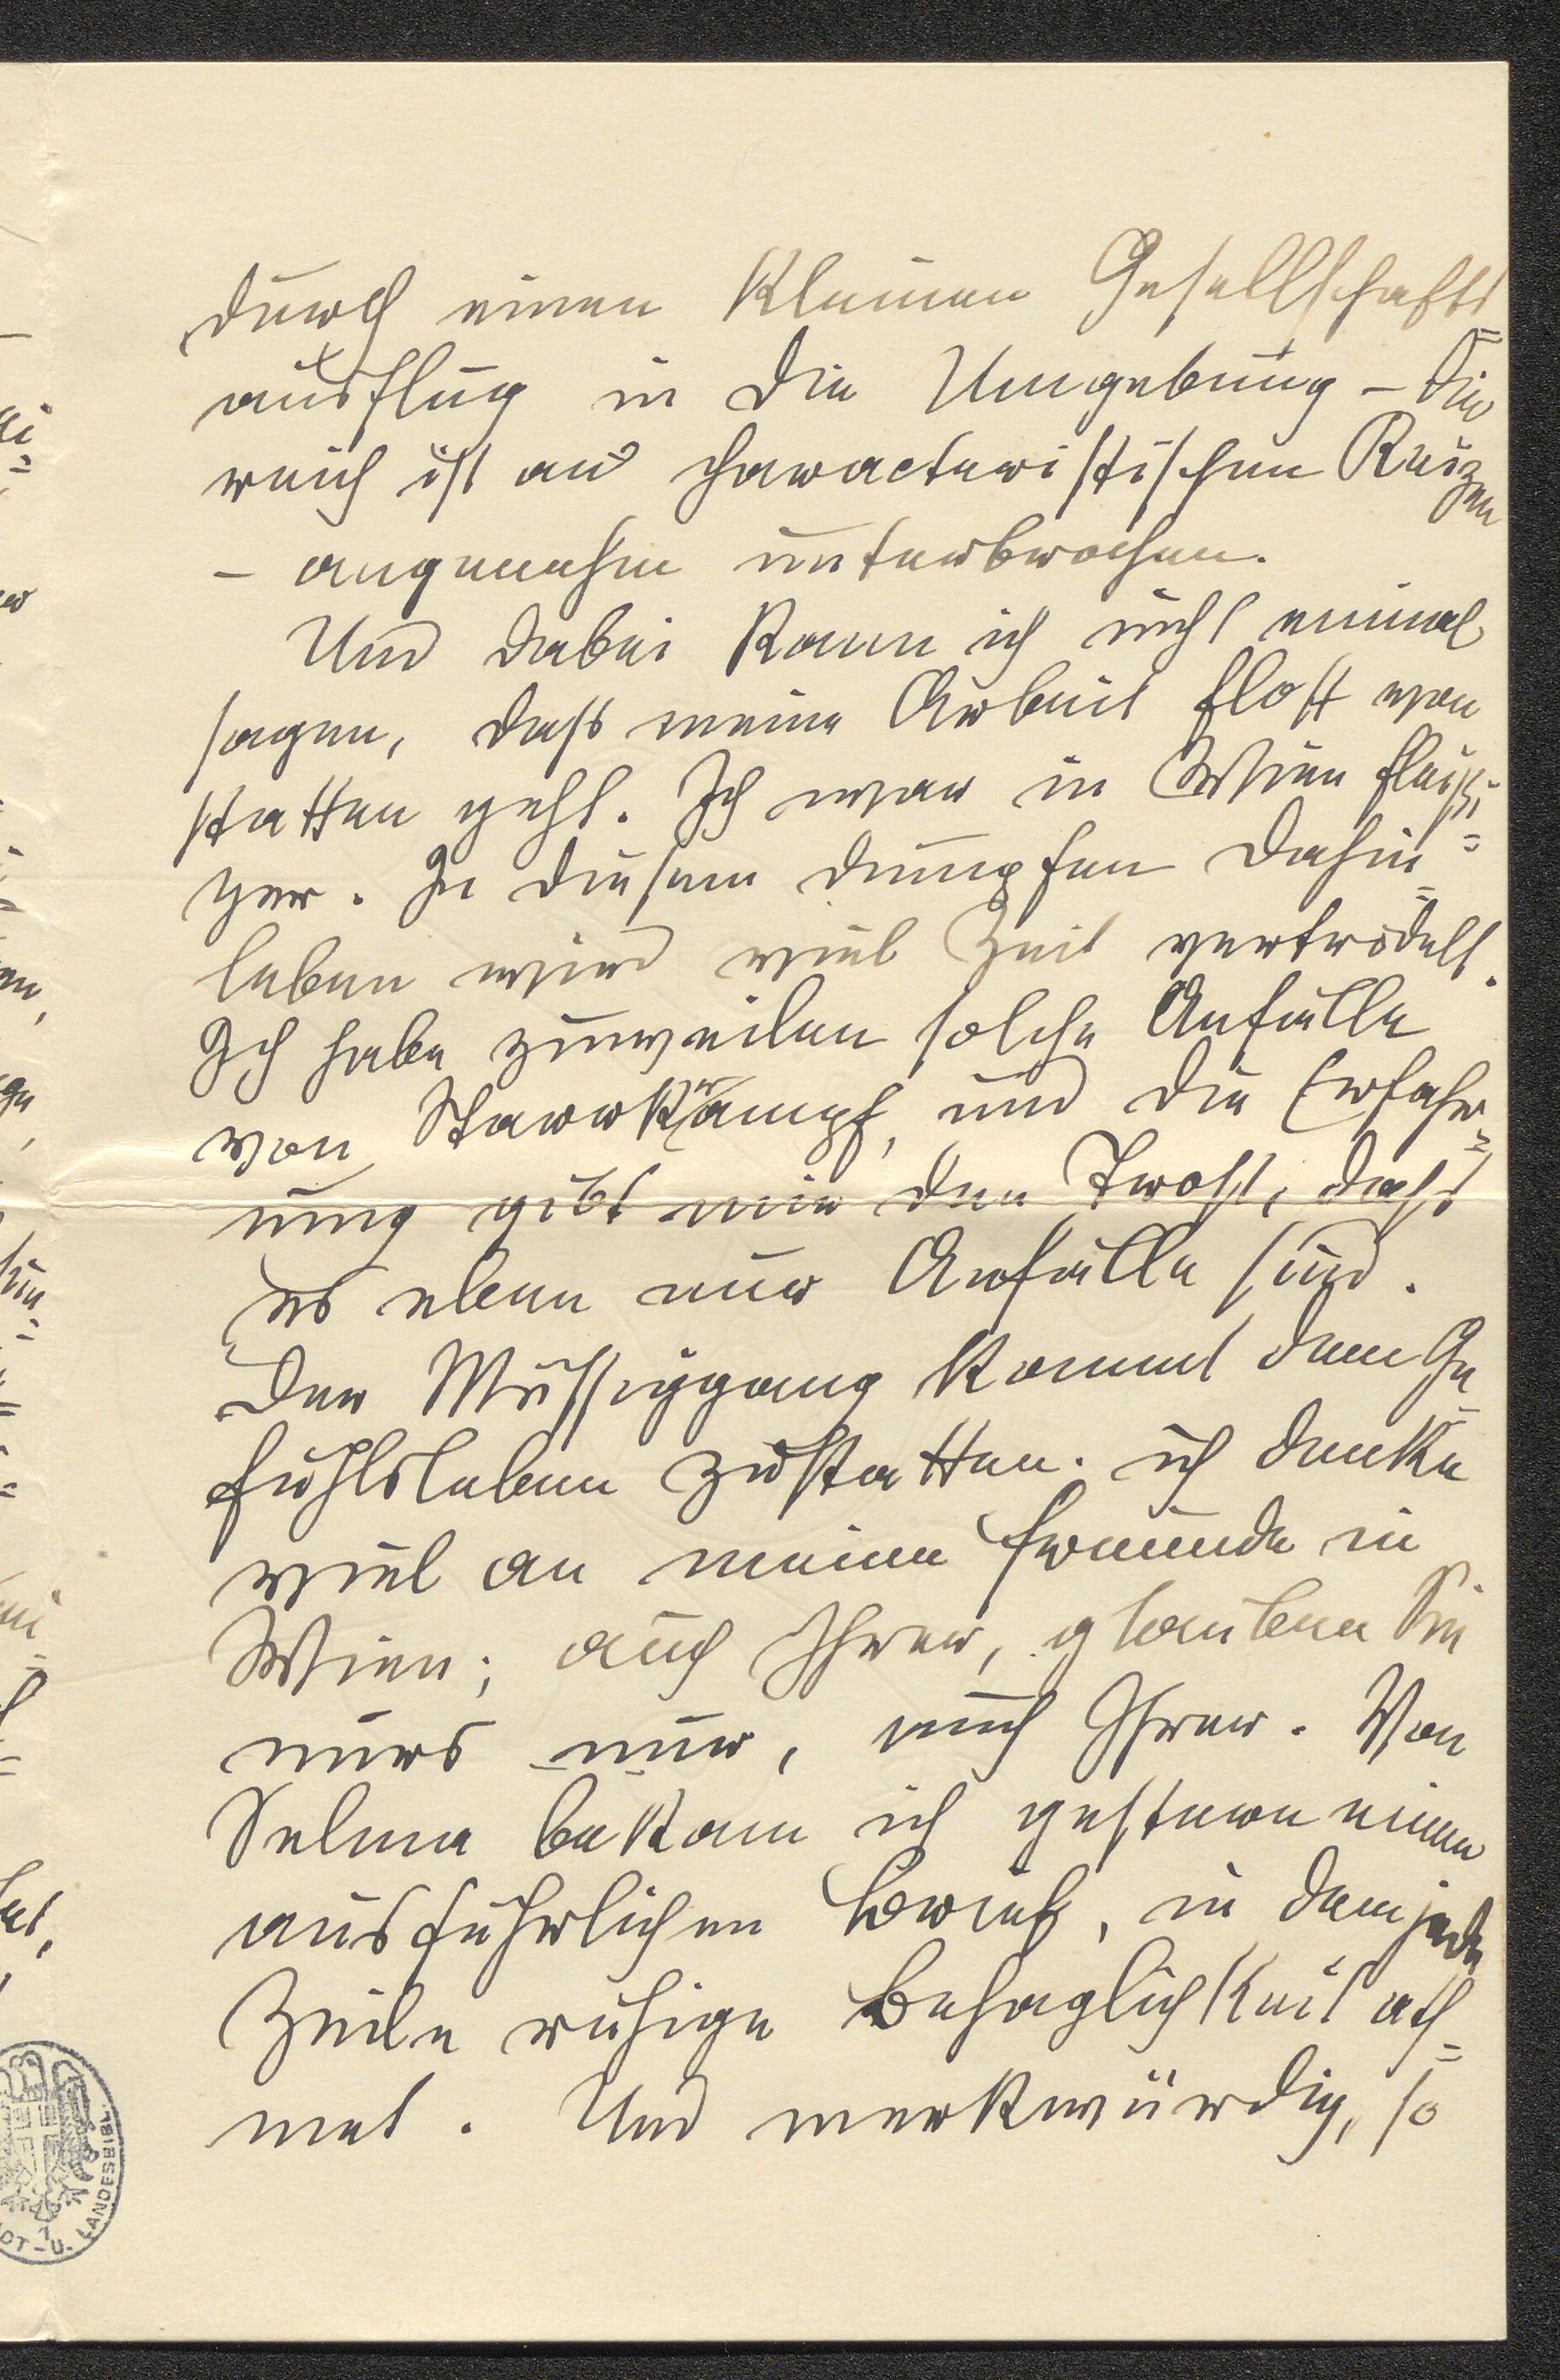 durch einen kleinen Gesellschafts=
ausflug in die Umgebung – die
reich ist an characteristischen Reizen
– angenehm unterbrochen.
Und dabei kann ich nicht einmal
sagen, dass meine Arbeit flott von
statten geht. Ich war in Wien fleissi=
ger. In diesem dumpfen Dahin=
leben wird viel Zeit vertrödelt.
Ich habe zuweilen solche Anfälle
von Starrkrampf, und die Erfahr=
ung gibt mir den Trost, dass
es eben nur Anfälle sind.
Der Müssiggang kommt dem Ge=
fühlsleben zustatten. ich denke
viel an meine Freunde in
Wien; auch Ihrer, glauben Sie
mirs nur, auch Ihrer. Von
Selma bekam ich gestern einen
ausführlichen Brief, in dem jede
Zeile ruhige Behaglichkeit ath=
met. Und merkwürdig, so
DT-U. LANDESBIBL.